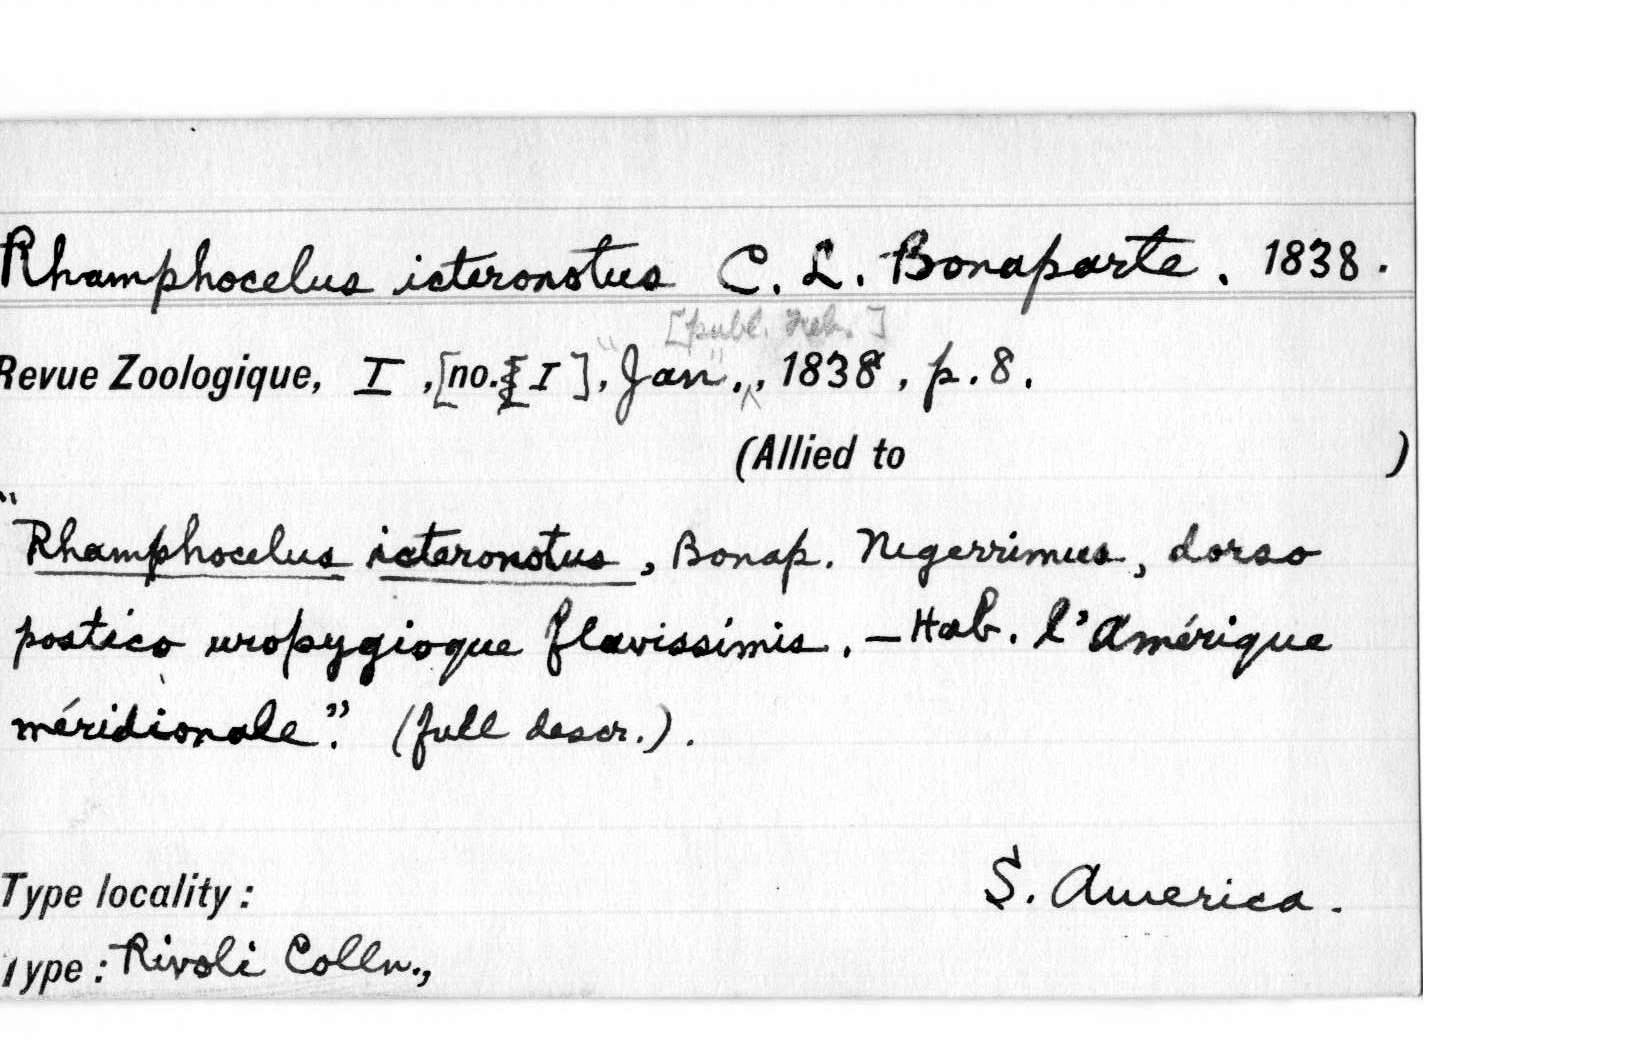 Rhamphocelus icteronotus C. L. Bonaparte. 1838.
[publ. Feb.]
Revue Zoologique, I, [no. I], "Jan"., 1838, p. 8.
(Allied to )
"Rhamphocelus icteronotus, Bonap. Nigerrimus, dorso
postico uropygioque flavissimis. – Hab. l'Amérique
méridionale." (full descr.).
Type locality: S. America.
Type: Rivoli Colln.,